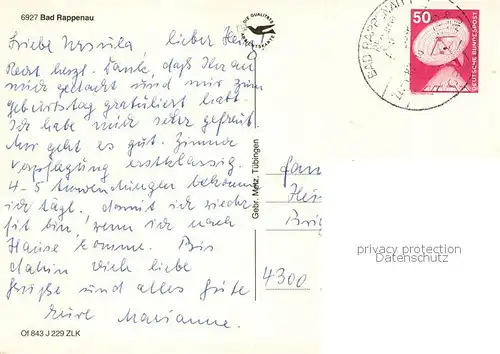 6927 Bad Rappenau
DIE QUALITÄTS
Liebe Ursula, lieber Heinz
Recht herzl. Dank, daß Ihr an
mich gedacht und mir zum
Geburtstag gratuliert habt.
Ich habe mich sehr gefreut
Mir geht es gut. Zimmer
Verpflegung erstklassig.
4-5 Anwendungen bekomme
ich tägl. damit ich wieder
fit bin, wenn ich nach
Hause komme. Bis
dahin viele liebe
Grüße und alles Gute
Eure Marianne.
Of 843 J 229 ZLK
Gebr. Metz, Tübingen
BAD RAPPENAU
50
DEUTSCHE BUNDESPOST
Fam
4300
privacy protection
Datenschutz